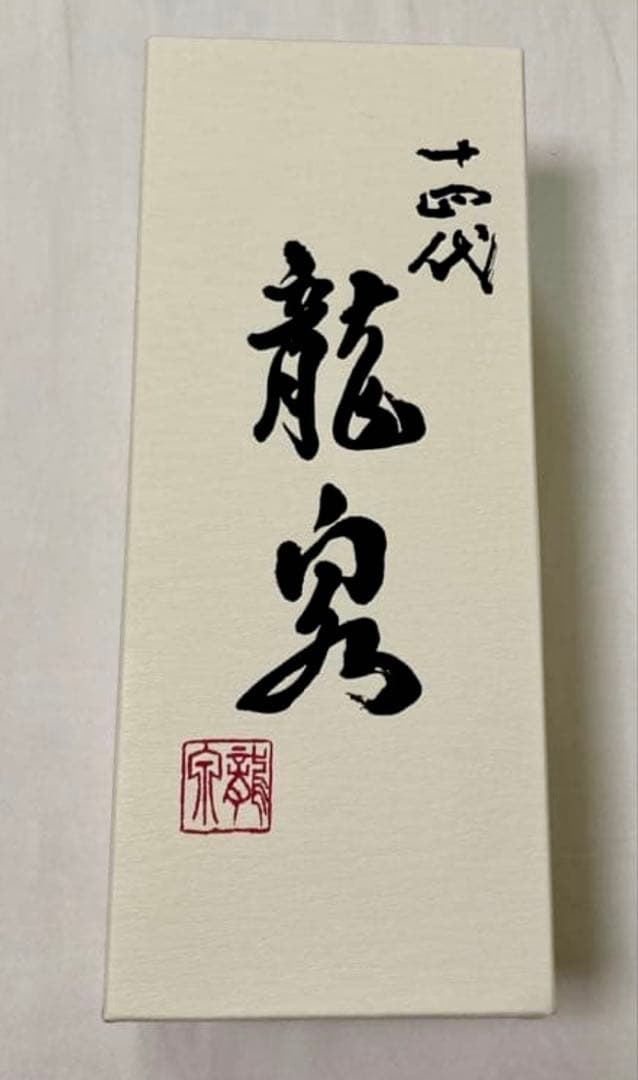 十四代
龍泉
龍宗